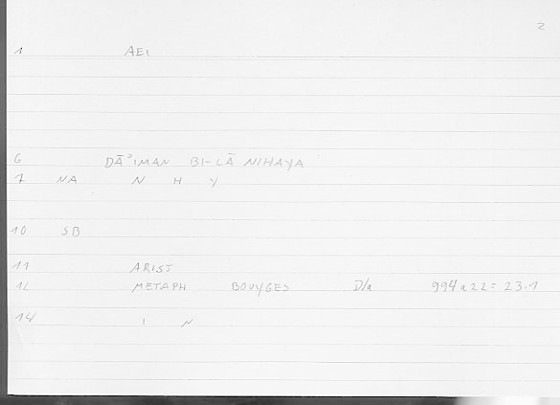 2
1 AEI
6 DĀʾIMAN BI-LĀ NIHAYA
7 NA N H Y
10 SB
11 ARIST
12 METAPH BOUYGES D/a 994a22 = 23.1
14 I N